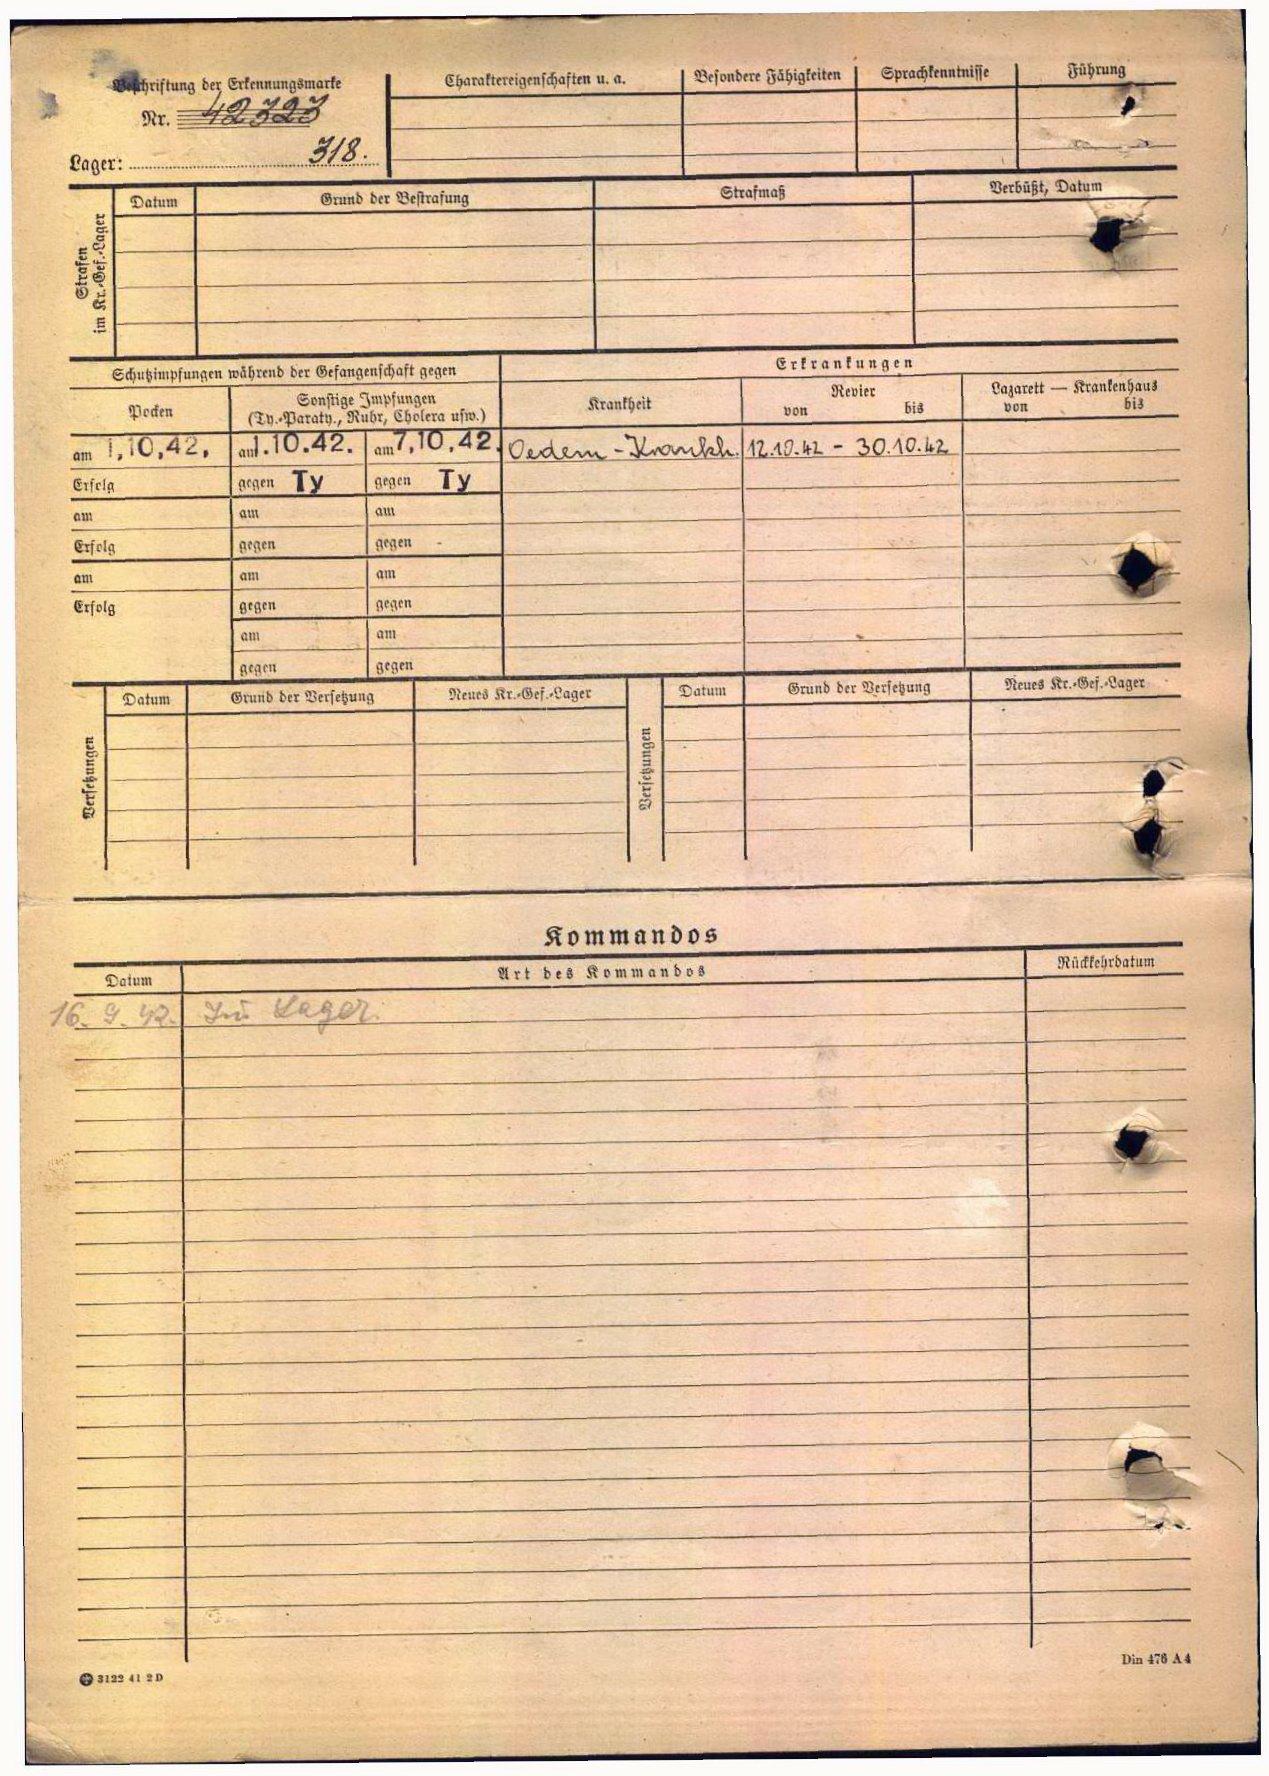 Beschriftung der Erkennungsmarke
Nr. 42323
Lager: 318.
Charaktereigenschaften u. a.
Besondere Fähigkeiten
Sprachkenntnisse
Führung
Strafen
im Kr.-Gef.-Lager
Datum
Grund der Bestrafung
Strafmaß
Verbüßt, Datum
Schutzimpfungen während der Gefangenschaft gegen
Erkrankungen
Pocken
Sonstige Impfungen
(Ty.-Paraty., Ruhr, Cholera usw.)
Krankheit
Revier
von bis
Lazarett — Krankenhaus
von bis
am 1.10.42. am 1.10.42. am 7.10.42. Oedem-Krankh. 12.10.42 - 30.10.42
Erfolg gegen Ty gegen Ty
am am am
Erfolg gegen gegen
am am am
Erfolg gegen gegen
am am
gegen gegen
Versetzungen
Datum Grund der Versetzung Neues Kr.-Gef.-Lager
Versetzungen
Datum Grund der Versetzung Neues Kr.-Gef.-Lager
Kommandos
Datum Art des Kommandos Rückkehrdatum
16. 9. 42. Im Lager.
3122 41 2 D
Din 476 A 4